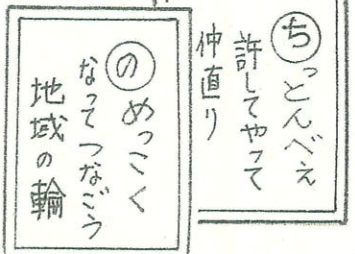 ちっとんべえ
許してやって
仲直り
のめっこく
なってつなごう
地域の輪